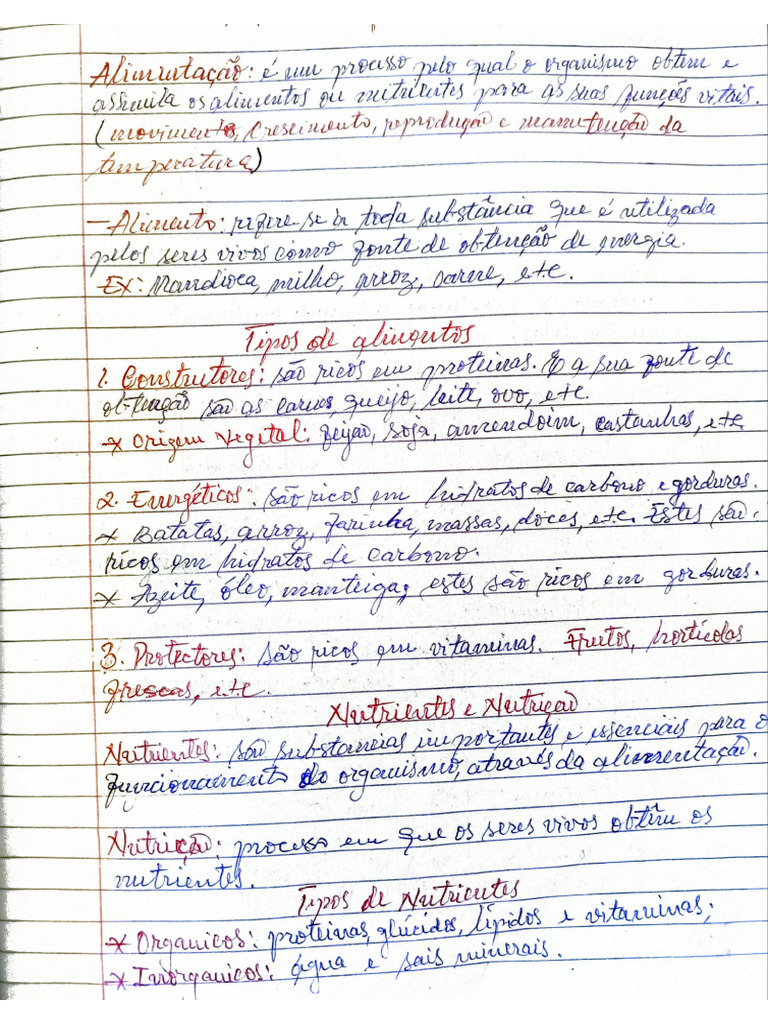 Alimentação: é um processo pelo qual o organismo obtem e
assimila os alimentos ou nutrientes para as suas funções vitais.
(movimentos, Crescimento, reprodução e manutenção da
temperatura)
- Alimento: refere se a toda substância que é utilizada
pelos seres vivos como fonte de obtenção de energia.
Ex: Mandioca, milho, arroz, carne, etc.
Tipos de alimentos
1. Construtores: são ricos em proteinas. E a sua fonte de
obtenção são as carnes, queijo, leite, ovo, etc.
* Origem Vegetal: feijão, soja, amendoim, castanhas, etc
2. Energéticos: são ricos em hidratos de carbono e gorduras.
* Batatas, arroz, farinha, massas, doces, etc. Estes são
ricos em hidratos de carbono.
* Azeite, óleo, manteiga, estes são ricos em gorduras.
3. Protectores: são ricos em vitaminas. Frutos, hortícolas
frescas, etc.
Nutrientes e Nutrição
Nutrientes: são substancias importantes e essenciais para o
funcionamento do organismo, através da alimentação.
Nutrição: processo em que os seres vivos obtêm os
nutrientes.
Tipos de Nutrientes
* Organicos: proteinas, glúcidos, lípidos e vitaminas;
* Inorganicos: água e sais minerais.